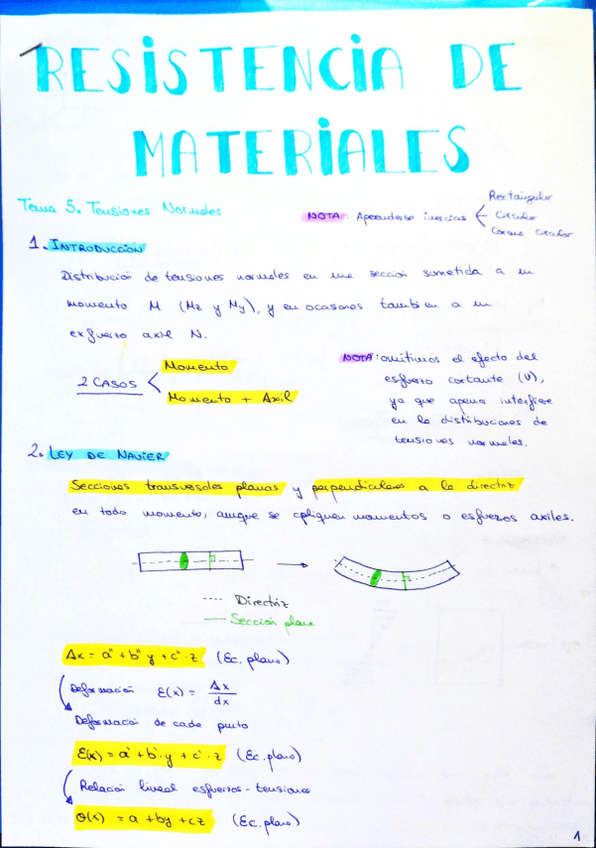 RESISTENCIA DE
MATERIALES
Tema 5. Tensiones Normales
NOTA: Aprenderse inercias
Rectangular
Circular
Corona circular
1. INTRODUCCIÓN
Distribución de tensiones normales en una sección sometida a un
momento M (Mz y My), y en ocasiones también a un
esfuerzo axil N.
2 CASOS
Momento
Momento + Axil
NOTA: omitimos el efecto del
esfuerzo cortante (V),
ya que apenas interfiere
en la distribuciones de
tensiones normales.
2. LEY DE NAVIER
Secciones transversales planas y perpendiculares a la directriz
en todo momento, aunque se apliquen momentos o esfuerzos axiles.
Directriz
Sección plana
Δx = a'' + b'' y + c'' · z (Ec. plano)
Deformación ε(x) = Δx / dx
Deformación de cada punto
ε(x) = a' + b' · y + c' · z (Ec. plano)
Relación lineal esfuerzos - tensiones
σ(x) = a + by + cz (Ec. plano)
1